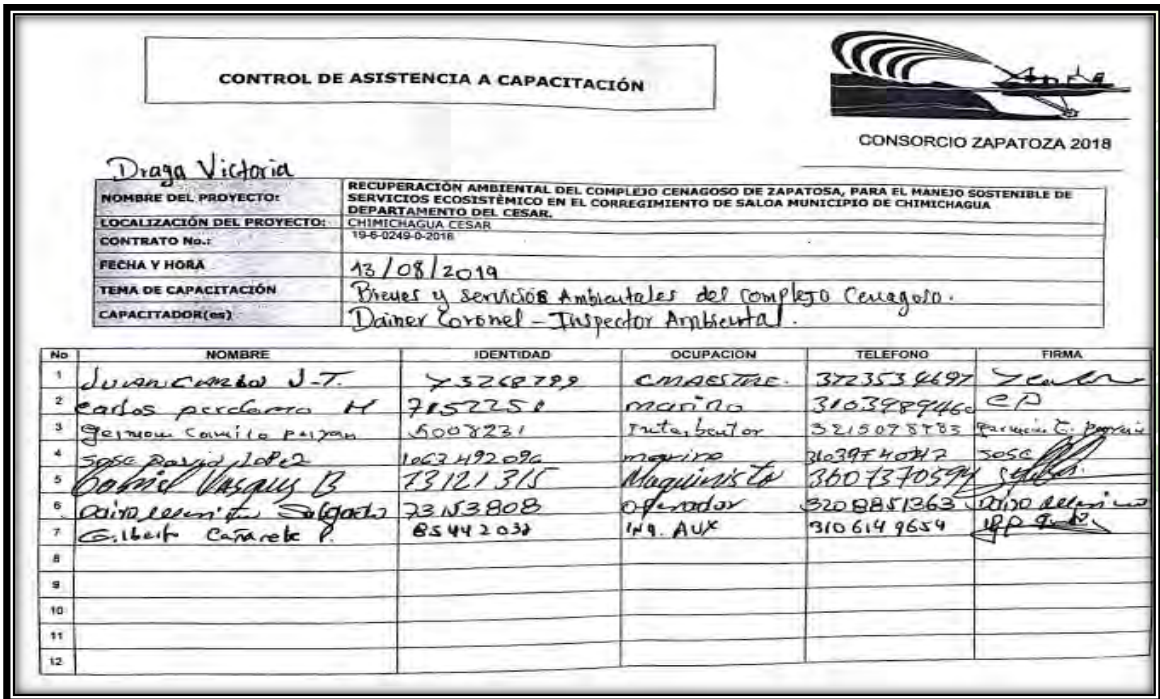 CONTROL DE ASISTENCIA A CAPACITACIÓN
CONSORCIO ZAPATOZA 2018
Draga Victoria
NOMBRE DEL PROYECTO: RECUPERACIÓN AMBIENTAL DEL COMPLEJO CENAGOSO DE ZAPATOSA, PARA EL MANEJO SOSTENIBLE DE
SERVICIOS ECOSISTÉMICO EN EL CORREGIMIENTO DE SALOA MUNICIPIO DE CHIMICHAGUA
DEPARTAMENTO DEL CESAR.
LOCALIZACIÓN DEL PROYECTO: CHIMICHAGUA CESAR
CONTRATO No.: 19-6-0249-0-2018
FECHA Y HORA 13/08/2019
TEMA DE CAPACITACIÓN Bienes y servicios Ambientales del complejo Cenagoso.
CAPACITADOR(es) Dainer Coronel - Inspector Ambiental.
No NOMBRE IDENTIDAD OCUPACION TELEFONO FIRMA
1 J.T. 73268799 CMAESTRE. 3723534697
2 Carlos perdomo H 7152251 marino 3103989460 CP
3 Camilo 5008231 3215098783
4 David Lopez 1063492096 marino 31039740817 Jose
5 Gabriel Vasquez B 73121315 Maquinista 3607370594
6 Salgado 73153808 operador 3208851363
7 Gilberto Cañarete P. 85442032 ing. AUX 3106149659
8
9
10
11
12